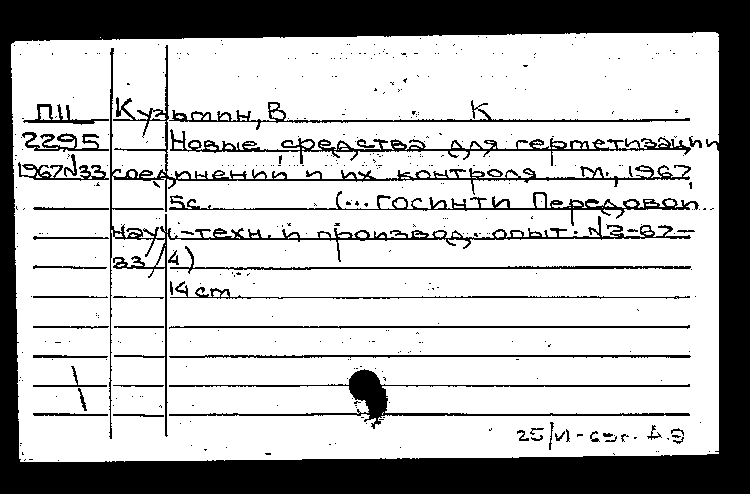 П11 Кузьмин, В К
2295 Новые средства для герметизации
1967 N33 соединений и их контроля. М., 1967
5с. (... ГОСИНТИ Передовой
науч-техн. и производ. опыт. N3-67-
33/4)
14 cm
25/VI-69г. А.Э